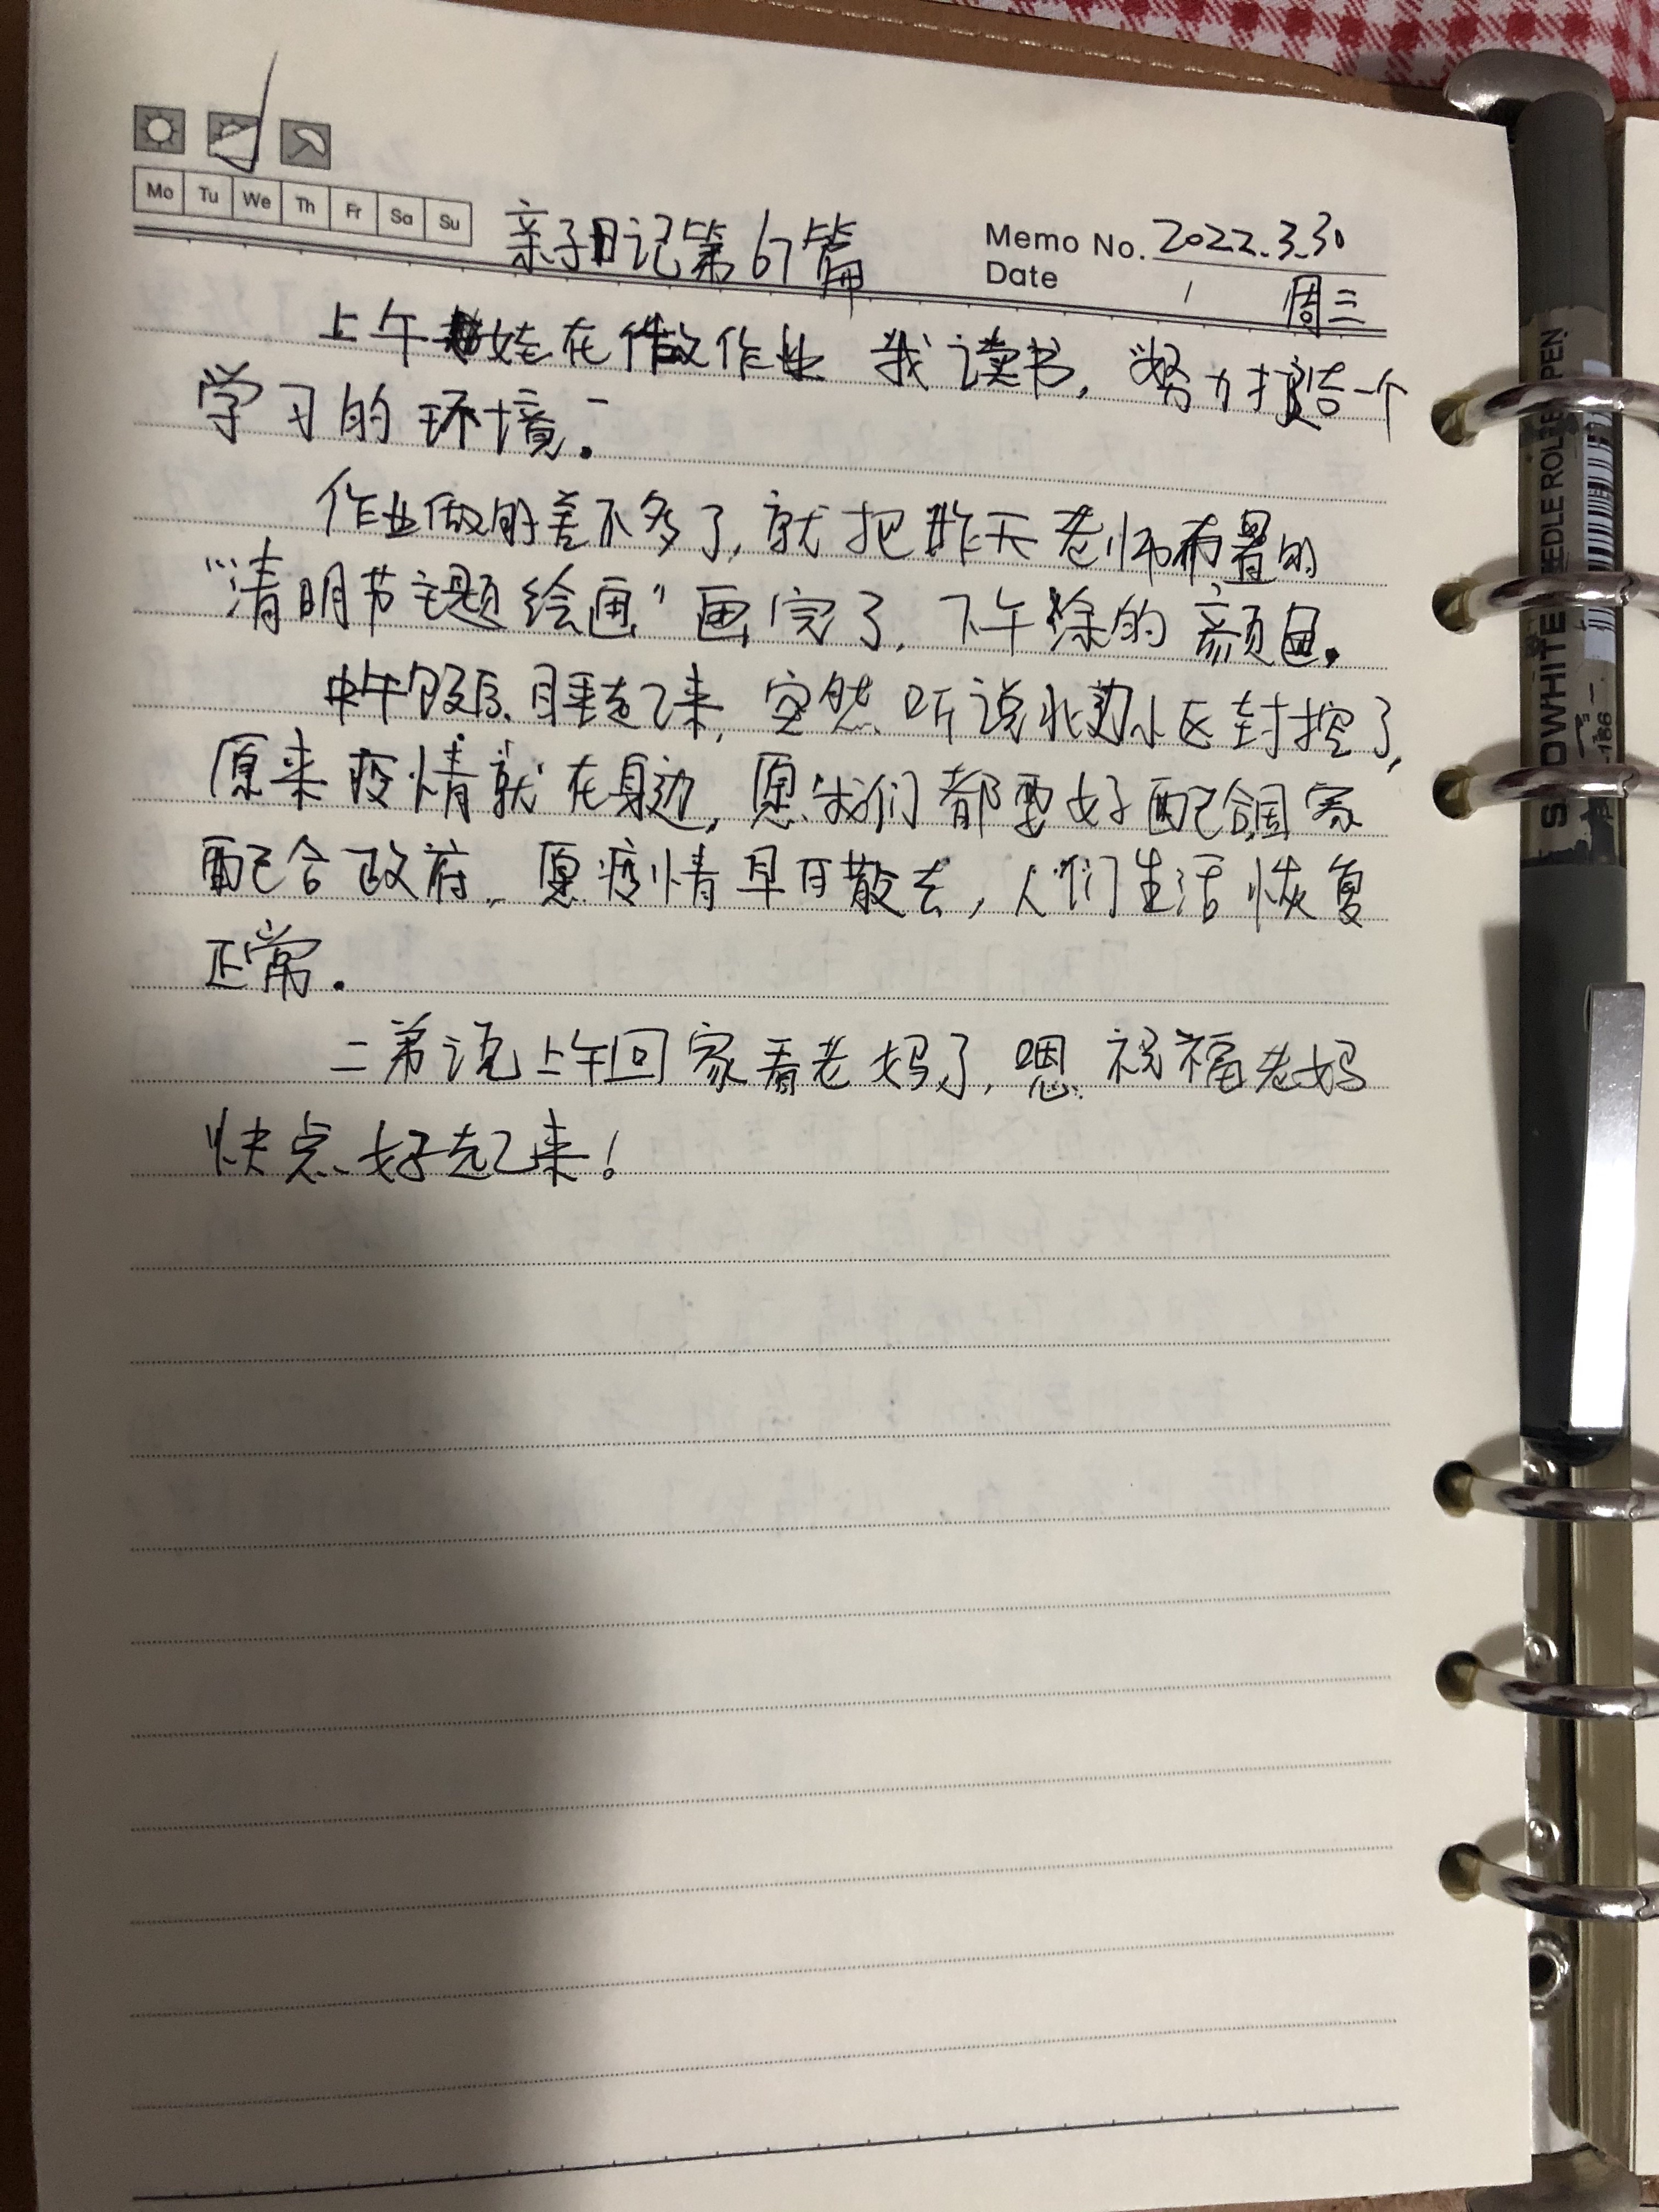 Mo Tu We Th Fr Sa Su
亲子日记第67篇
Memo No. 2022.3.30
Date / 周三
上午娃在做作业 我读书,努力打造一个
学习的环境.
作业做的差不多了,就把昨天老师布置的
"清明节主题绘画"画完了,下午涂的颜色.
中午饭后,睡起来,突然听说北边小区封控了,
原来疫情就在身边,愿我们都要好配合国家
配合政府,愿疫情早日散去,人们生活恢复
正常.
二弟说上午回家看老妈了,嗯,祝福老妈
快点好起来!
SNOWHITE NEEDLE ROLLER PEN